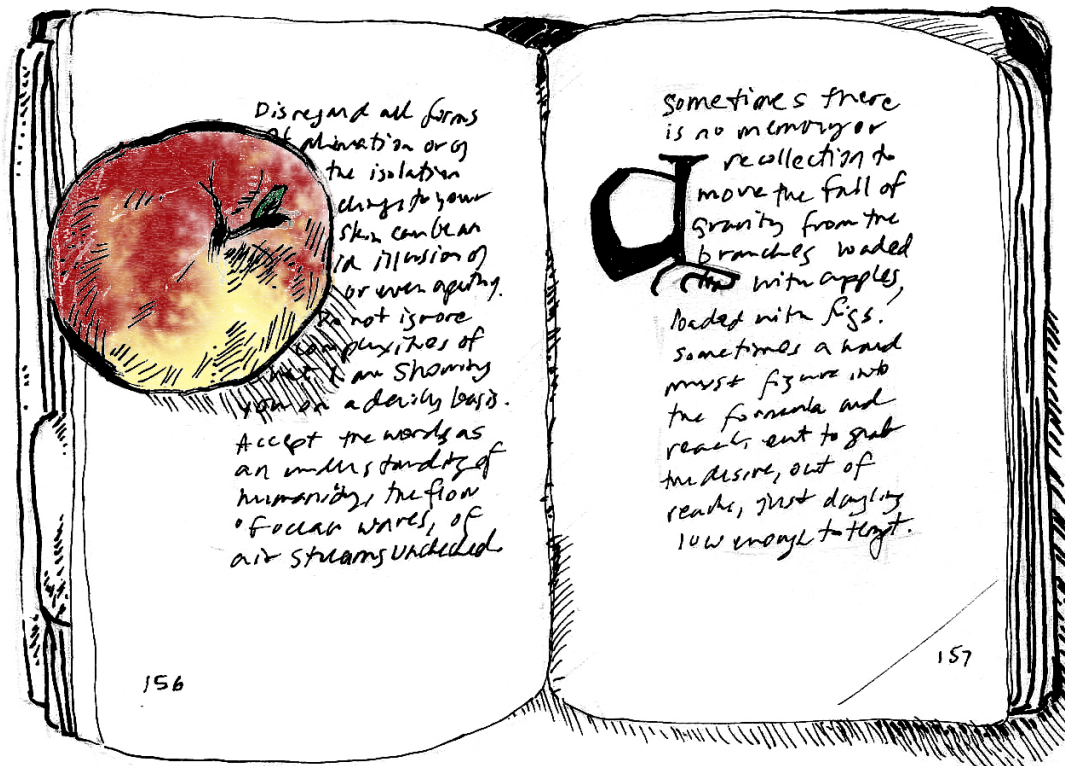 Disregard all forms
of animation or of
the isolation
clings to your
skin can be an
illusion of
or even
Do not ignore
complexities of
I am showing
you on a daily basis.
Accept the words as
an understanding of
humanity, the flow
of ocean waves, of
air streams
156
sometimes there
is no memory or
recollection to
move the fall of
gravity from the
branches loaded
with apples,
loaded with figs.
sometimes a hand
must figure into
the formula and
reach, out to grab
the desire, out of
reach, just dangling
low enough to tempt.
157